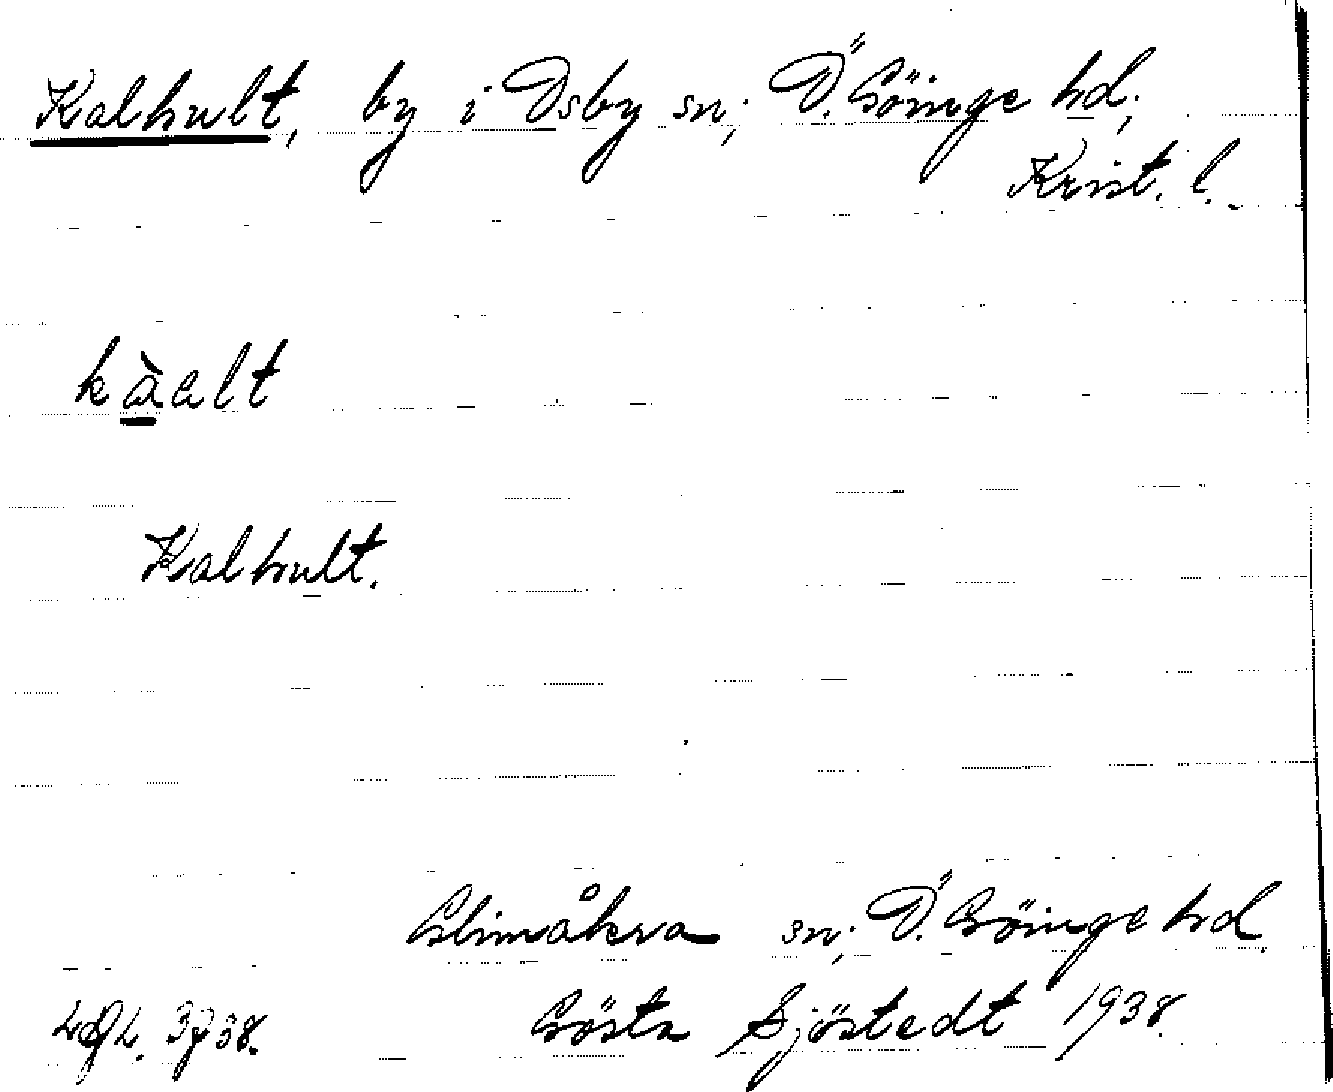 Kalhult, by i Osby sn; Ö. Göinge hd;
Krist. l.
kàalt
Kalhult.
Glimåkra sn; Ö. Göinge hd.
Gösta Sjöstedt 1938.